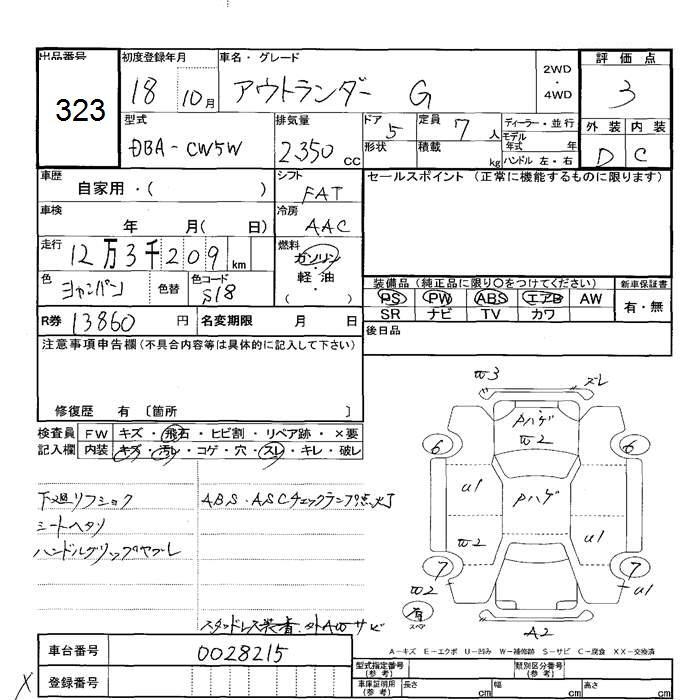 出品番号 初度登録年月 車名・グレード 評価点
323 18 10月 アウトランダー G 2WD・4WD 3
型式 排気量 ドア 定員 ディーラー・並行 外装 内装
DBA-CW5W 2350cc 5 7人 モデル年式 年 D C
形状 積載 kg ハンドル 左・右
車歴 シフト セールスポイント(正常に機能するものに限ります)
自家用・( ) FAT
車検 冷房
年 月( 日) AAC
走行 燃料
12万3千209km ガソリン・軽油
( ・ )
色 色替 色コード 装備品(純正品に限り○をつけてください) 新車保証書
シャンパン S18 PS PW ABS エアB AW 有・無
SR ナビ TV カワ
R券 13860円 名変期限 月 日 後日品
注意事項申告欄(不具合内容等は具体的に記入して下さい)
修復歴 有 〔箇所 〕
検査員 FW キズ・飛石・ヒビ割・リペア跡・×要
記入欄 内装 キズ・汚レ・コゲ・穴・スレ・キレ・破レ
下廻リフショク ABS・ASCチェックランプ点灯
シートヘタリ
ハンドルグリップヤブレ
スタッドレス装着.外AWサビ
W3 ズレ
Pハゲ
W2
6 6
U1 Pハゲ
W2 U1
7 7
W2 U1
有
スペア
A2
A-キズ E-エクボ U-凹み W-補修跡 S-サビ C-腐食 XX-交換済
車台番号 0028215
登録番号
型式指定番号(参考) 類別区分番号(参考)
車庫証明用(参考) 長さ cm 幅 cm 高さ cm
X